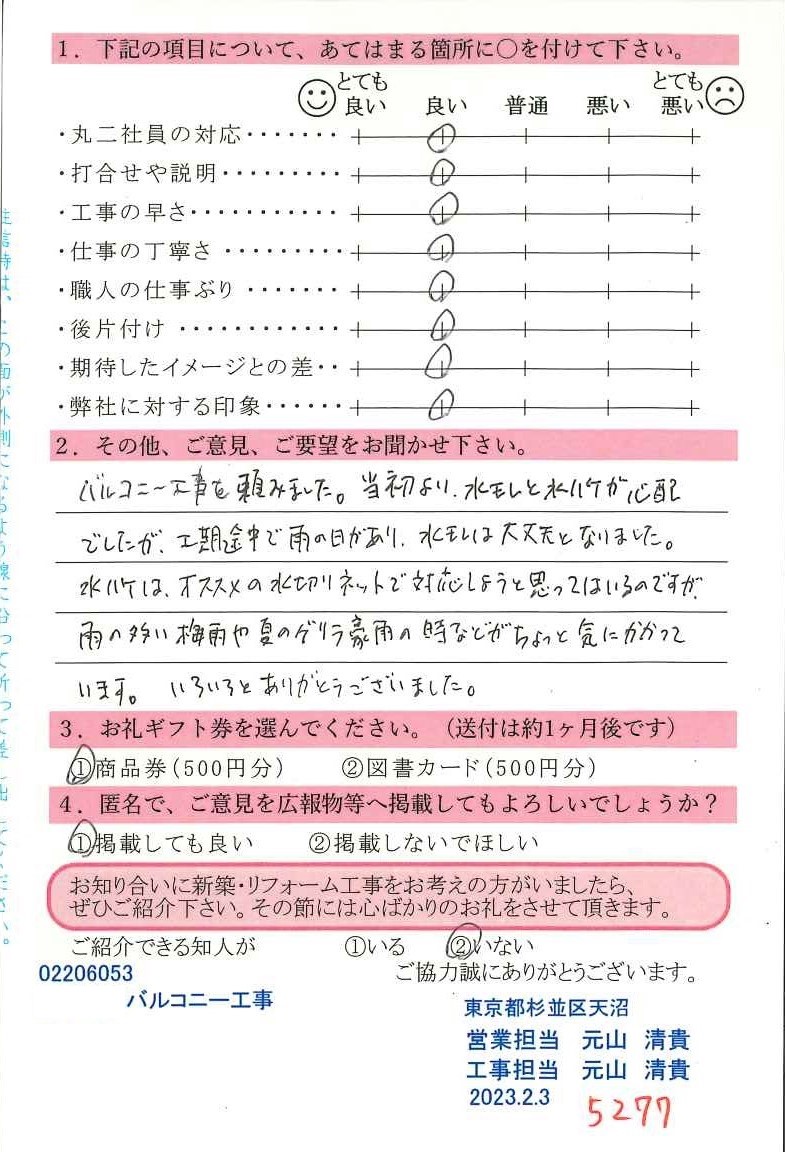 1．下記の項目について、あてはまる箇所に○を付けて下さい。
とても良い 良い 普通 悪い とても悪い
・丸二社員の対応・・・・・・・
・打合せや説明・・・・・・・・・
・工事の早さ・・・・・・・・・・・
・仕事の丁寧さ・・・・・・・・・
・職人の仕事ぶり・・・・・・・
・後片付け・・・・・・・・・・・・
・期待したイメージとの差・・
・弊社に対する印象・・・・・・
2．その他、ご意見、ご要望をお聞かせ下さい。
バルコニー工事を頼みました。当初より、水モレと水ハケが心配
でしたが、工期途中で雨の日があり、水モレは大丈夫となりました。
水ハケは、オススメの水切りネットで対応しようと思ってはいるのですが、
雨の多い梅雨や夏のゲリラ豪雨の時などがちょっと気にかかって
います。 いろいろとありがとうございました。
3．お礼ギフト券を選んでください。（送付は約1ヶ月後です）
①商品券（500円分） ②図書カード（500円分）
4．匿名で、ご意見を広報物等へ掲載してもよろしいでしょうか？
①掲載しても良い ②掲載しないでほしい
お知り合いに新築・リフォーム工事をお考えの方がいましたら、
ぜひご紹介下さい。その節には心ばかりのお礼をさせて頂きます。
ご紹介できる知人が ①いる ②いない
ご協力誠にありがとうございます。
02206053
バルコニー工事
東京都杉並区天沼
営業担当 元山 清貴
工事担当 元山 清貴
2023.2.3
5277